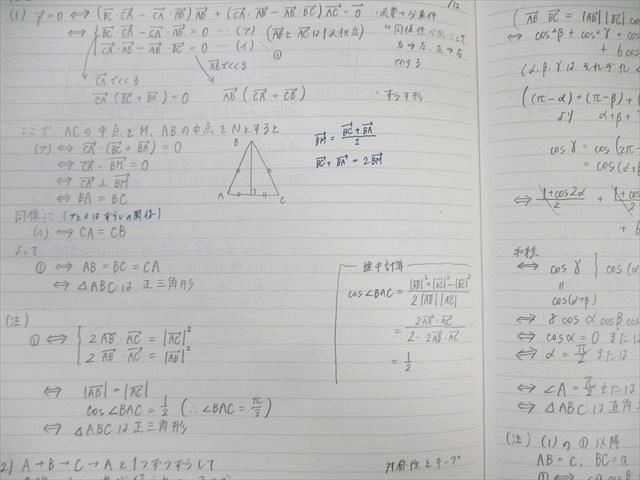 (1) γ⃗=0 ⇔ (BC⃗・CA⃗ − CA⃗・AB⃗) AB⃗ + (CA⃗・AB⃗ − AB⃗・BC⃗) AC⃗ = 0⃗
・必要十分条件
⇔ { BC⃗・CA⃗ − CA⃗・AB⃗ = 0 … (ア) (AB⃗とAC⃗は1次独立)
CA⃗・AB⃗ − AB⃗・BC⃗ = 0 … (イ) … ①
CA⃗でくくる
AB⃗でくくる
CA⃗ (BC⃗ + BA⃗) = 0
AB⃗ (CA⃗ + CB⃗)
・ずらす形
ここで ACの中点をM, ABの中点をNとすると
(ア) ⇔ CA⃗・(BC⃗ + BA⃗) = 0
⇔ CA⃗・BM⃗ = 0
⇔ CA⃗ ⊥ BM⃗
⇔ BA = BC
B
A
C
BM⃗ = (BC⃗ + BA⃗)/2
BC⃗ + BA⃗ = 2BM⃗
同様に (アとイはずらしの関係)
(イ) ⇔ CA = CB
よって
① ⇔ AB = BC = CA
⇔ △ABCは正三角形
途中計算
cos∠BAC = (|AB⃗|² + |AC⃗|² − |BC⃗|²)/(2|AB⃗||AC⃗|)
= (2AB⃗・AC⃗)/(2・2AB⃗・AC⃗)
= 1/2
(注)
① ⇔ { 2AB⃗・AC⃗ = |AC⃗|²
2AB⃗・AC⃗ = |AB⃗|²
⇔ |AB⃗| = |AC⃗|
cos∠BAC = 1/2 (∴∠BAC = π/3)
⇔ △ABCは正三角形
2) A→B→C→Aと1つずつずらして
対称性をキープ
1/2
(AB⃗・BC⃗ = |AB⃗||BC⃗| co
⇔ cos²β + cos²γ + cos
+ 6cos
(α, β, γはそれぞれ
((π−α) + (π−β) + (
より α+β+
cosγ = cos (2π−
= cos (α+
⇔ (1+cos2α)/2 + (1+cos
+ 6
和積
⇔ cosγ { cos (α
cos(α+β)
⇔ 8 cosα cosβ cos
⇔ cosα = 0 または
⇔ α = π/2 または
⇔ ∠A = π/2 または
⇔ △ABCは直角三
(注) (1)の①以降
AB = c, BC = a,
①⇔